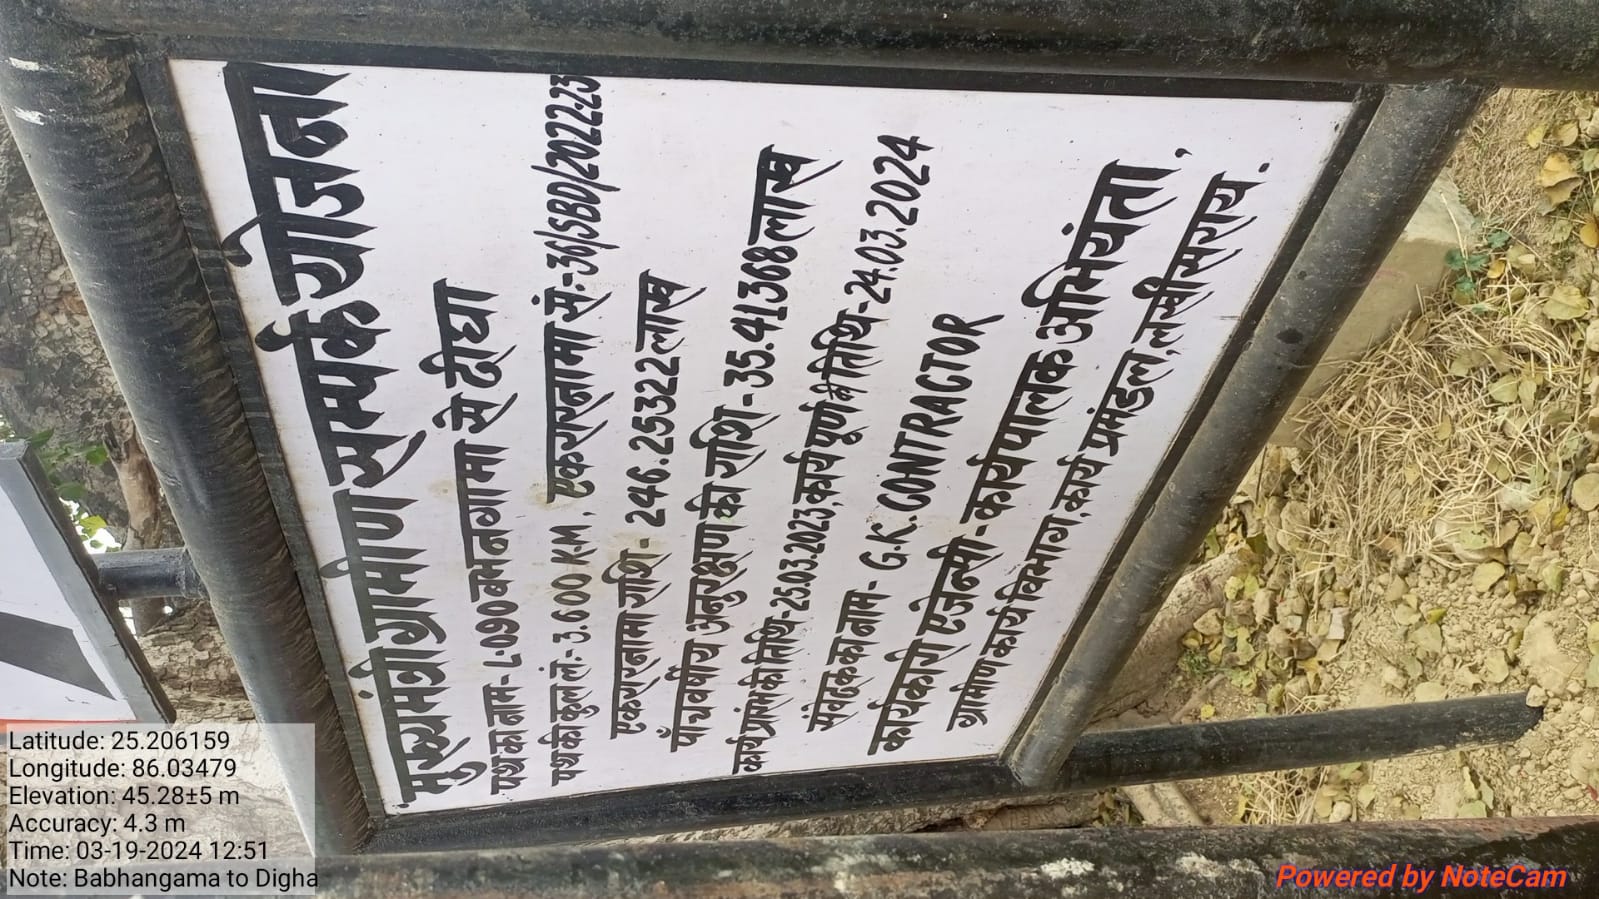 मुख्यमंत्री ग्रामीण सम्पर्क योजना
पथ का नाम- L-090 बभनगामा से दीघा
पथ की कुल लं.- 3.600 K.M. एकरारनामा सं.:-36/SBD/2022-23
एकरारनामा राशि- 246.25322 लाख
पाँचवर्षीय अनुरक्षण की राशि - 35.41368 लाख
कार्य प्रारंभ की तिथि-25.03.2023, कार्य पूर्ण की तिथि-24.03.2024
संवेदक का नाम- G.K.CONTRACTOR
कार्यकारी एजेन्सी-कार्यपालक अभियंता,
ग्रामीण कार्य विभाग, कार्य प्रमंडल, लखीसराय.
Latitude: 25.206159
Longitude: 86.03479
Elevation: 45.28±5 m
Accuracy: 4.3 m
Time: 03-19-2024 12:51
Note: Babhangama to Digha
Powered by NoteCam